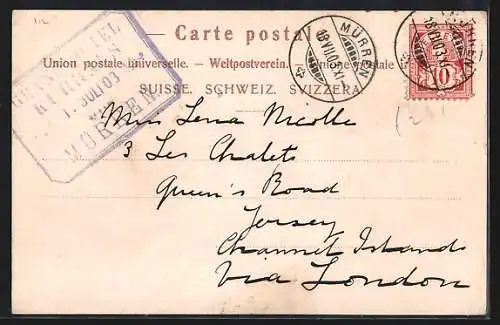 Carte postale.
Union postale universelle. – Weltpostverein. – Unione postale
SUISSE. SCHWEIZ. SVIZZERA.
KURHAUS
MÜRREN
MÜRREN
18.VII.03.XI
10
Miss Lena Nicolle
3 Les Chalets
Queen's Road
Jersey
Channel Islands
Via London